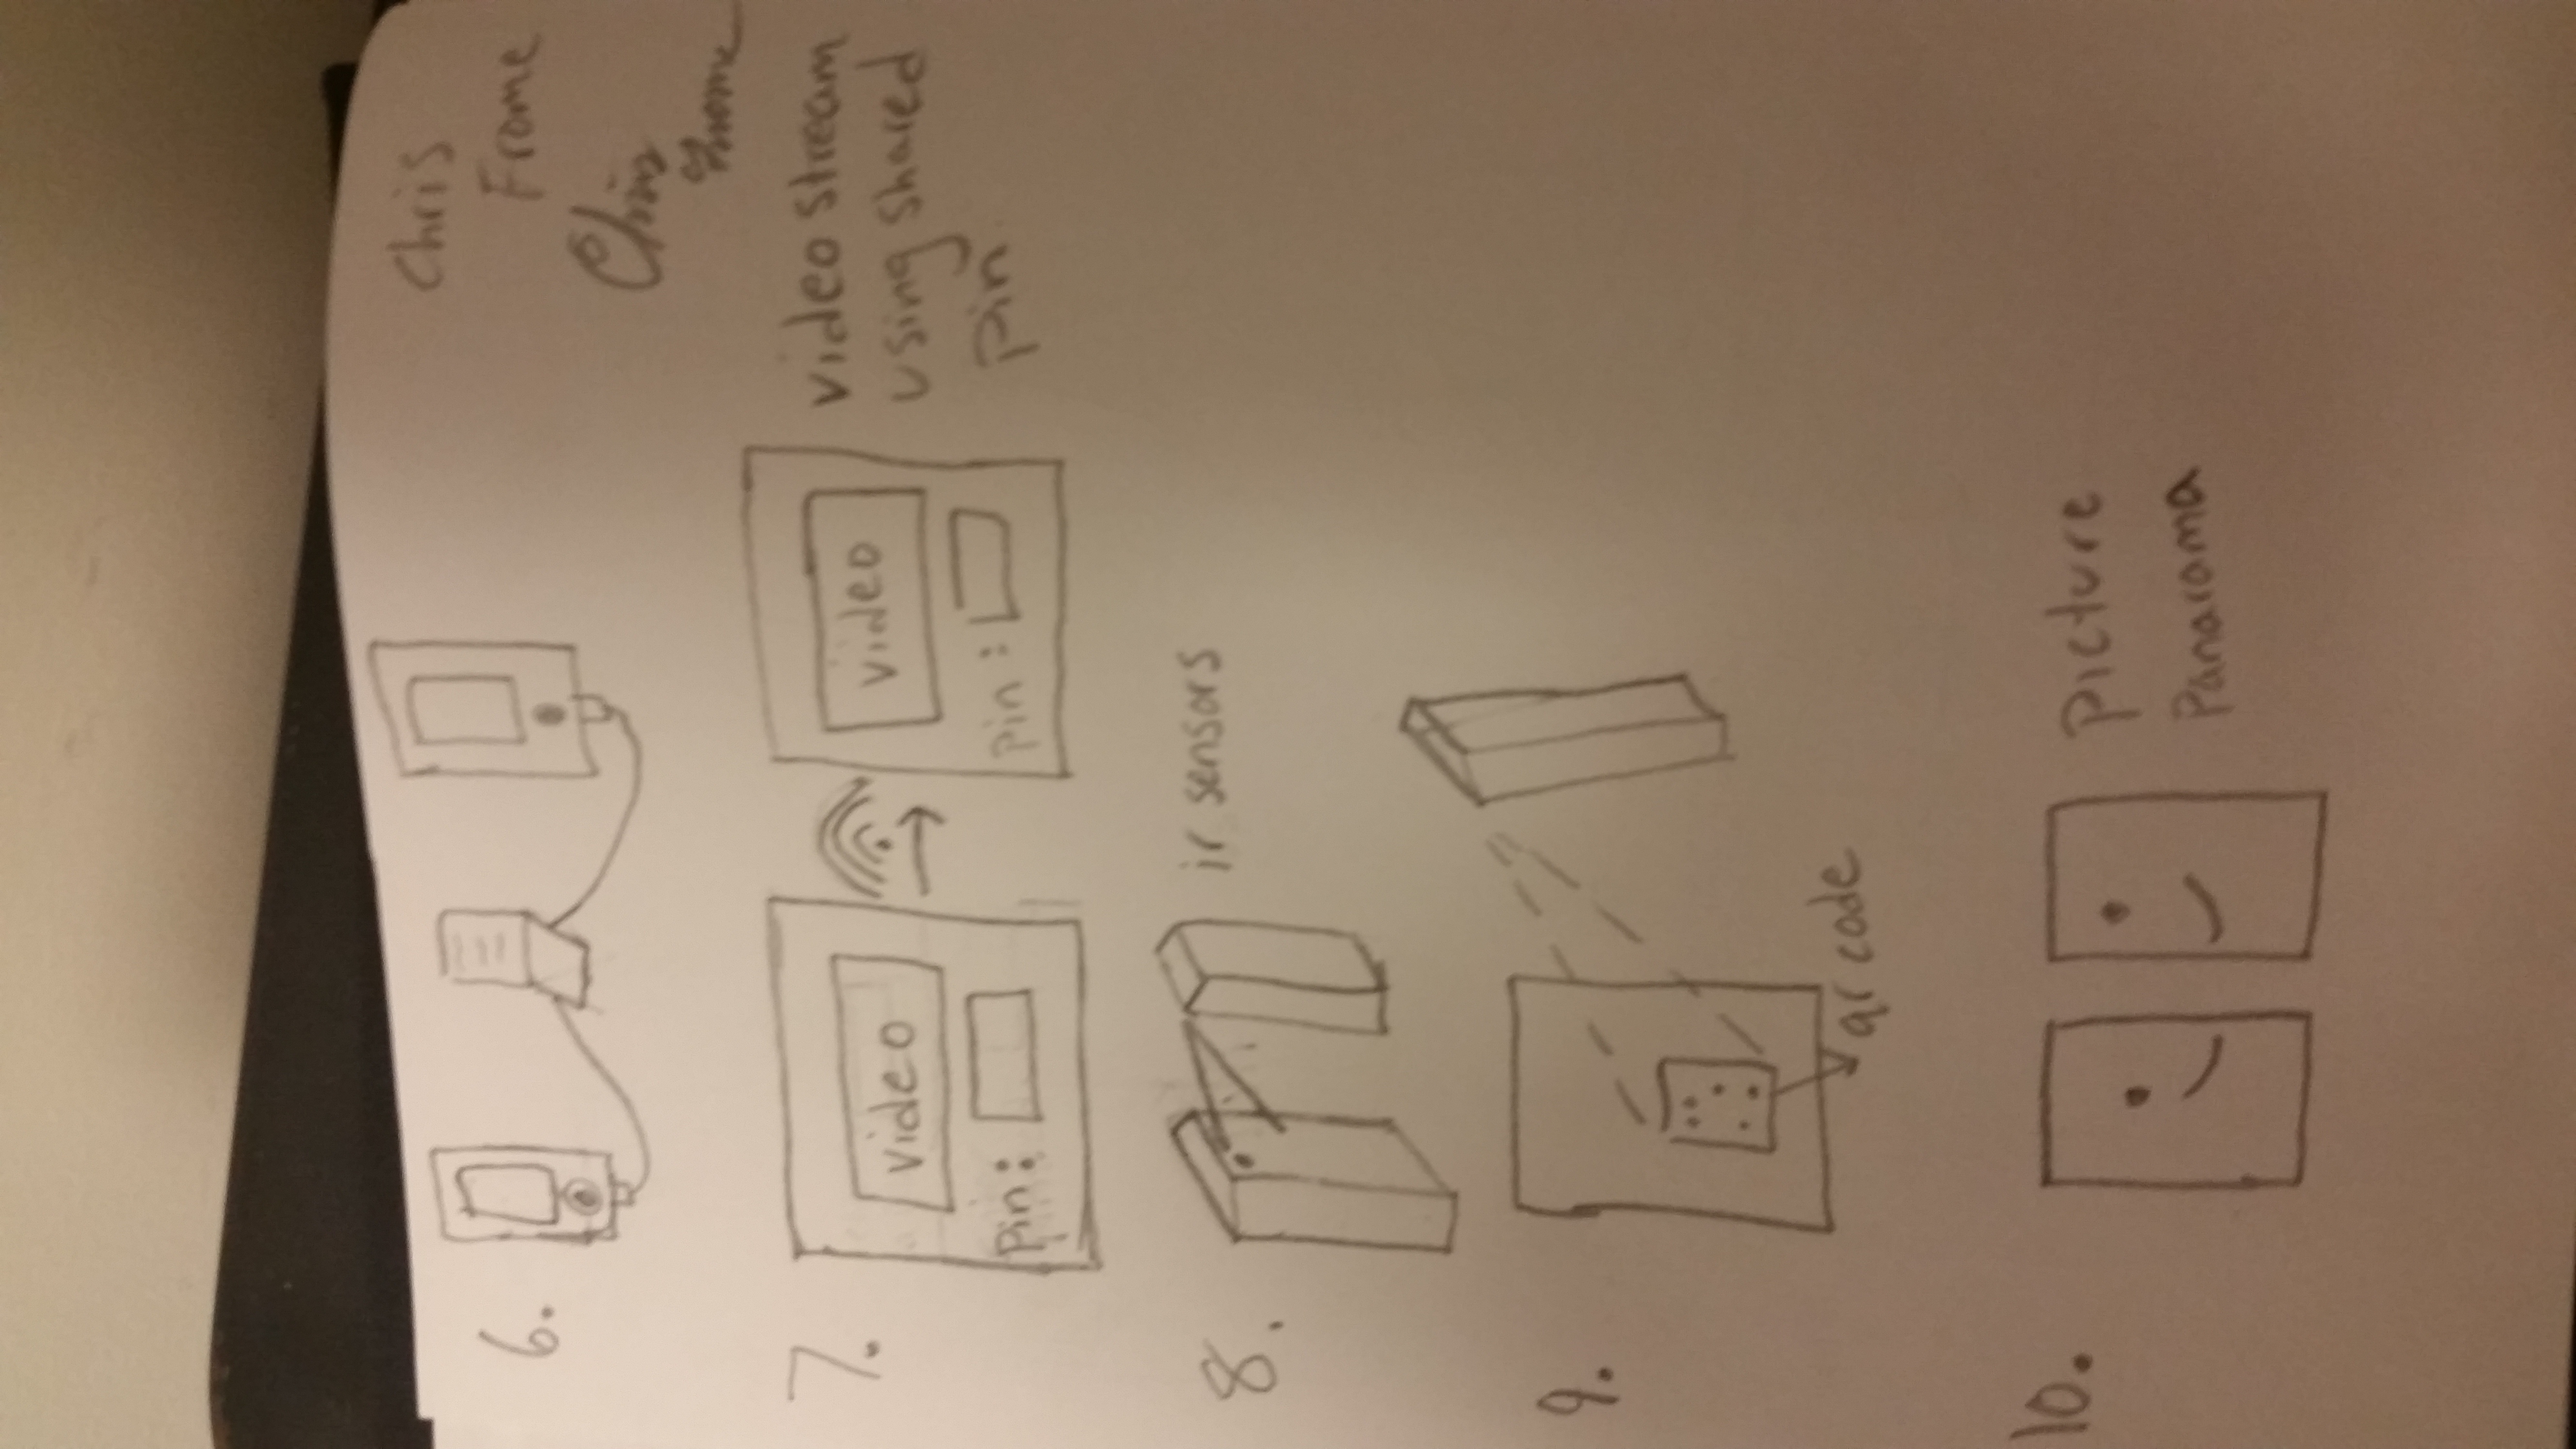 Chris
Frome
6.
Chris
Frome
7.
video
video
video stream
using shared
pin
pin:
pin:
8.
ir sensors
9.
qr code
10.
picture
Panarama